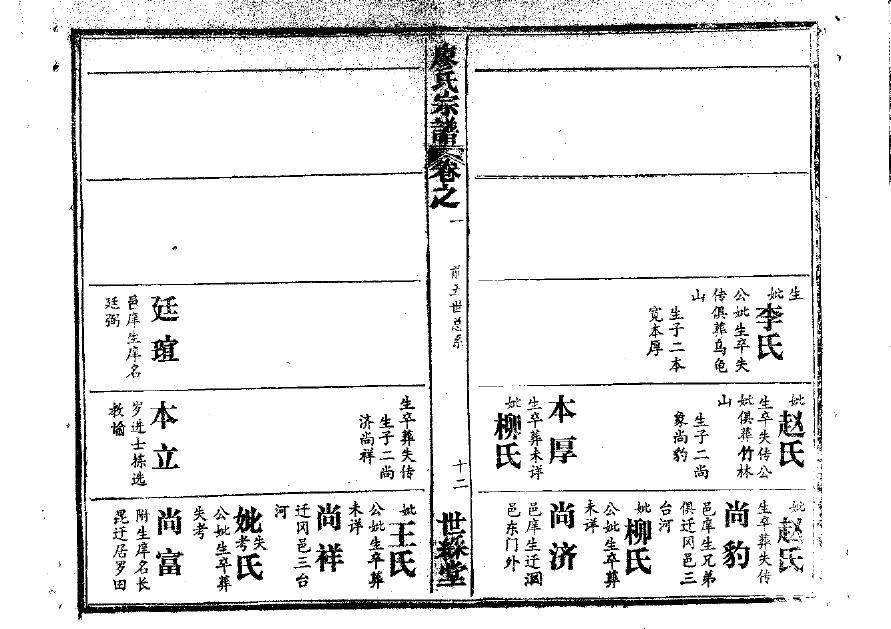 生
妣李氏
公妣生卒失
传俱葬乌龟
山
生子二本
宽本厚
妣赵氏
生卒失传公
妣俱葬竹林
山
生子二尚
象尚豹
本厚
生卒葬未详
妣柳氏
妣赵氏
生卒葬失传
尚豹
邑庠生兄弟
俱迁冈邑三
台河
妣柳氏
公妣生卒葬
未详
尚济
邑庠生迁
邑东门外
廖氏宗譜卷之一
前五世总系
十二
世綵堂
廷瑄
邑庠生庠名
廷弼
生卒葬失传
生子二尚
济尚祥
本立
岁进士拣选
教谕
妣王氏
公妣生卒葬
未详
尚祥
迁冈邑三台
河
妣失考氏
公妣生卒葬
失考
尚富
附生庠名长
迁居罗田